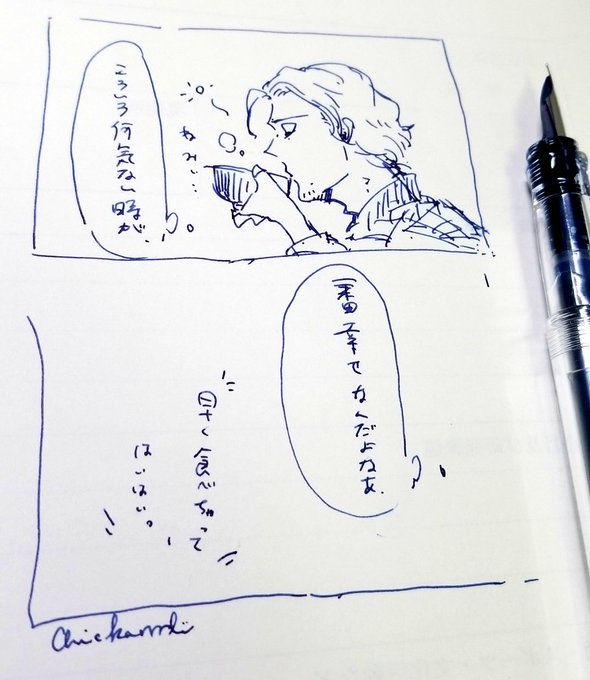 ねみい…
こういう何気ない時が、
一番幸せなんだよなあ.
早く食べちゃって
はいはい。